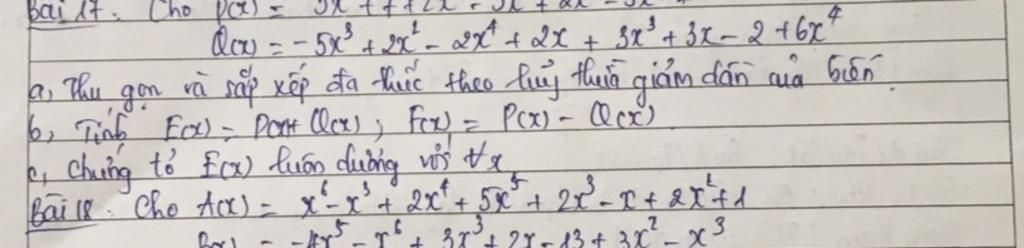 Bài 17. Cho P(x) =
Q(x) = -5x³ + 2x² - 2x⁴ + 2x + 3x³ + 3x - 2 + 6x⁴
a, Thu gọn và sắp xếp đa thức theo luỹ thừa giảm dần của biến
b, Tính E(x) = P(x)+ Q(x) ; F(x) = P(x) - Q(x)
c, Chứng tỏ E(x) luôn dương với ∀x
Bài 18. Cho A(x) = x⁶ - x³ + 2x⁴ + 5x⁵ + 2x³ - x + 2x² + 1
= -4x⁵ - x⁶ + 3x³ + 2x - 13 + 3x² - x³